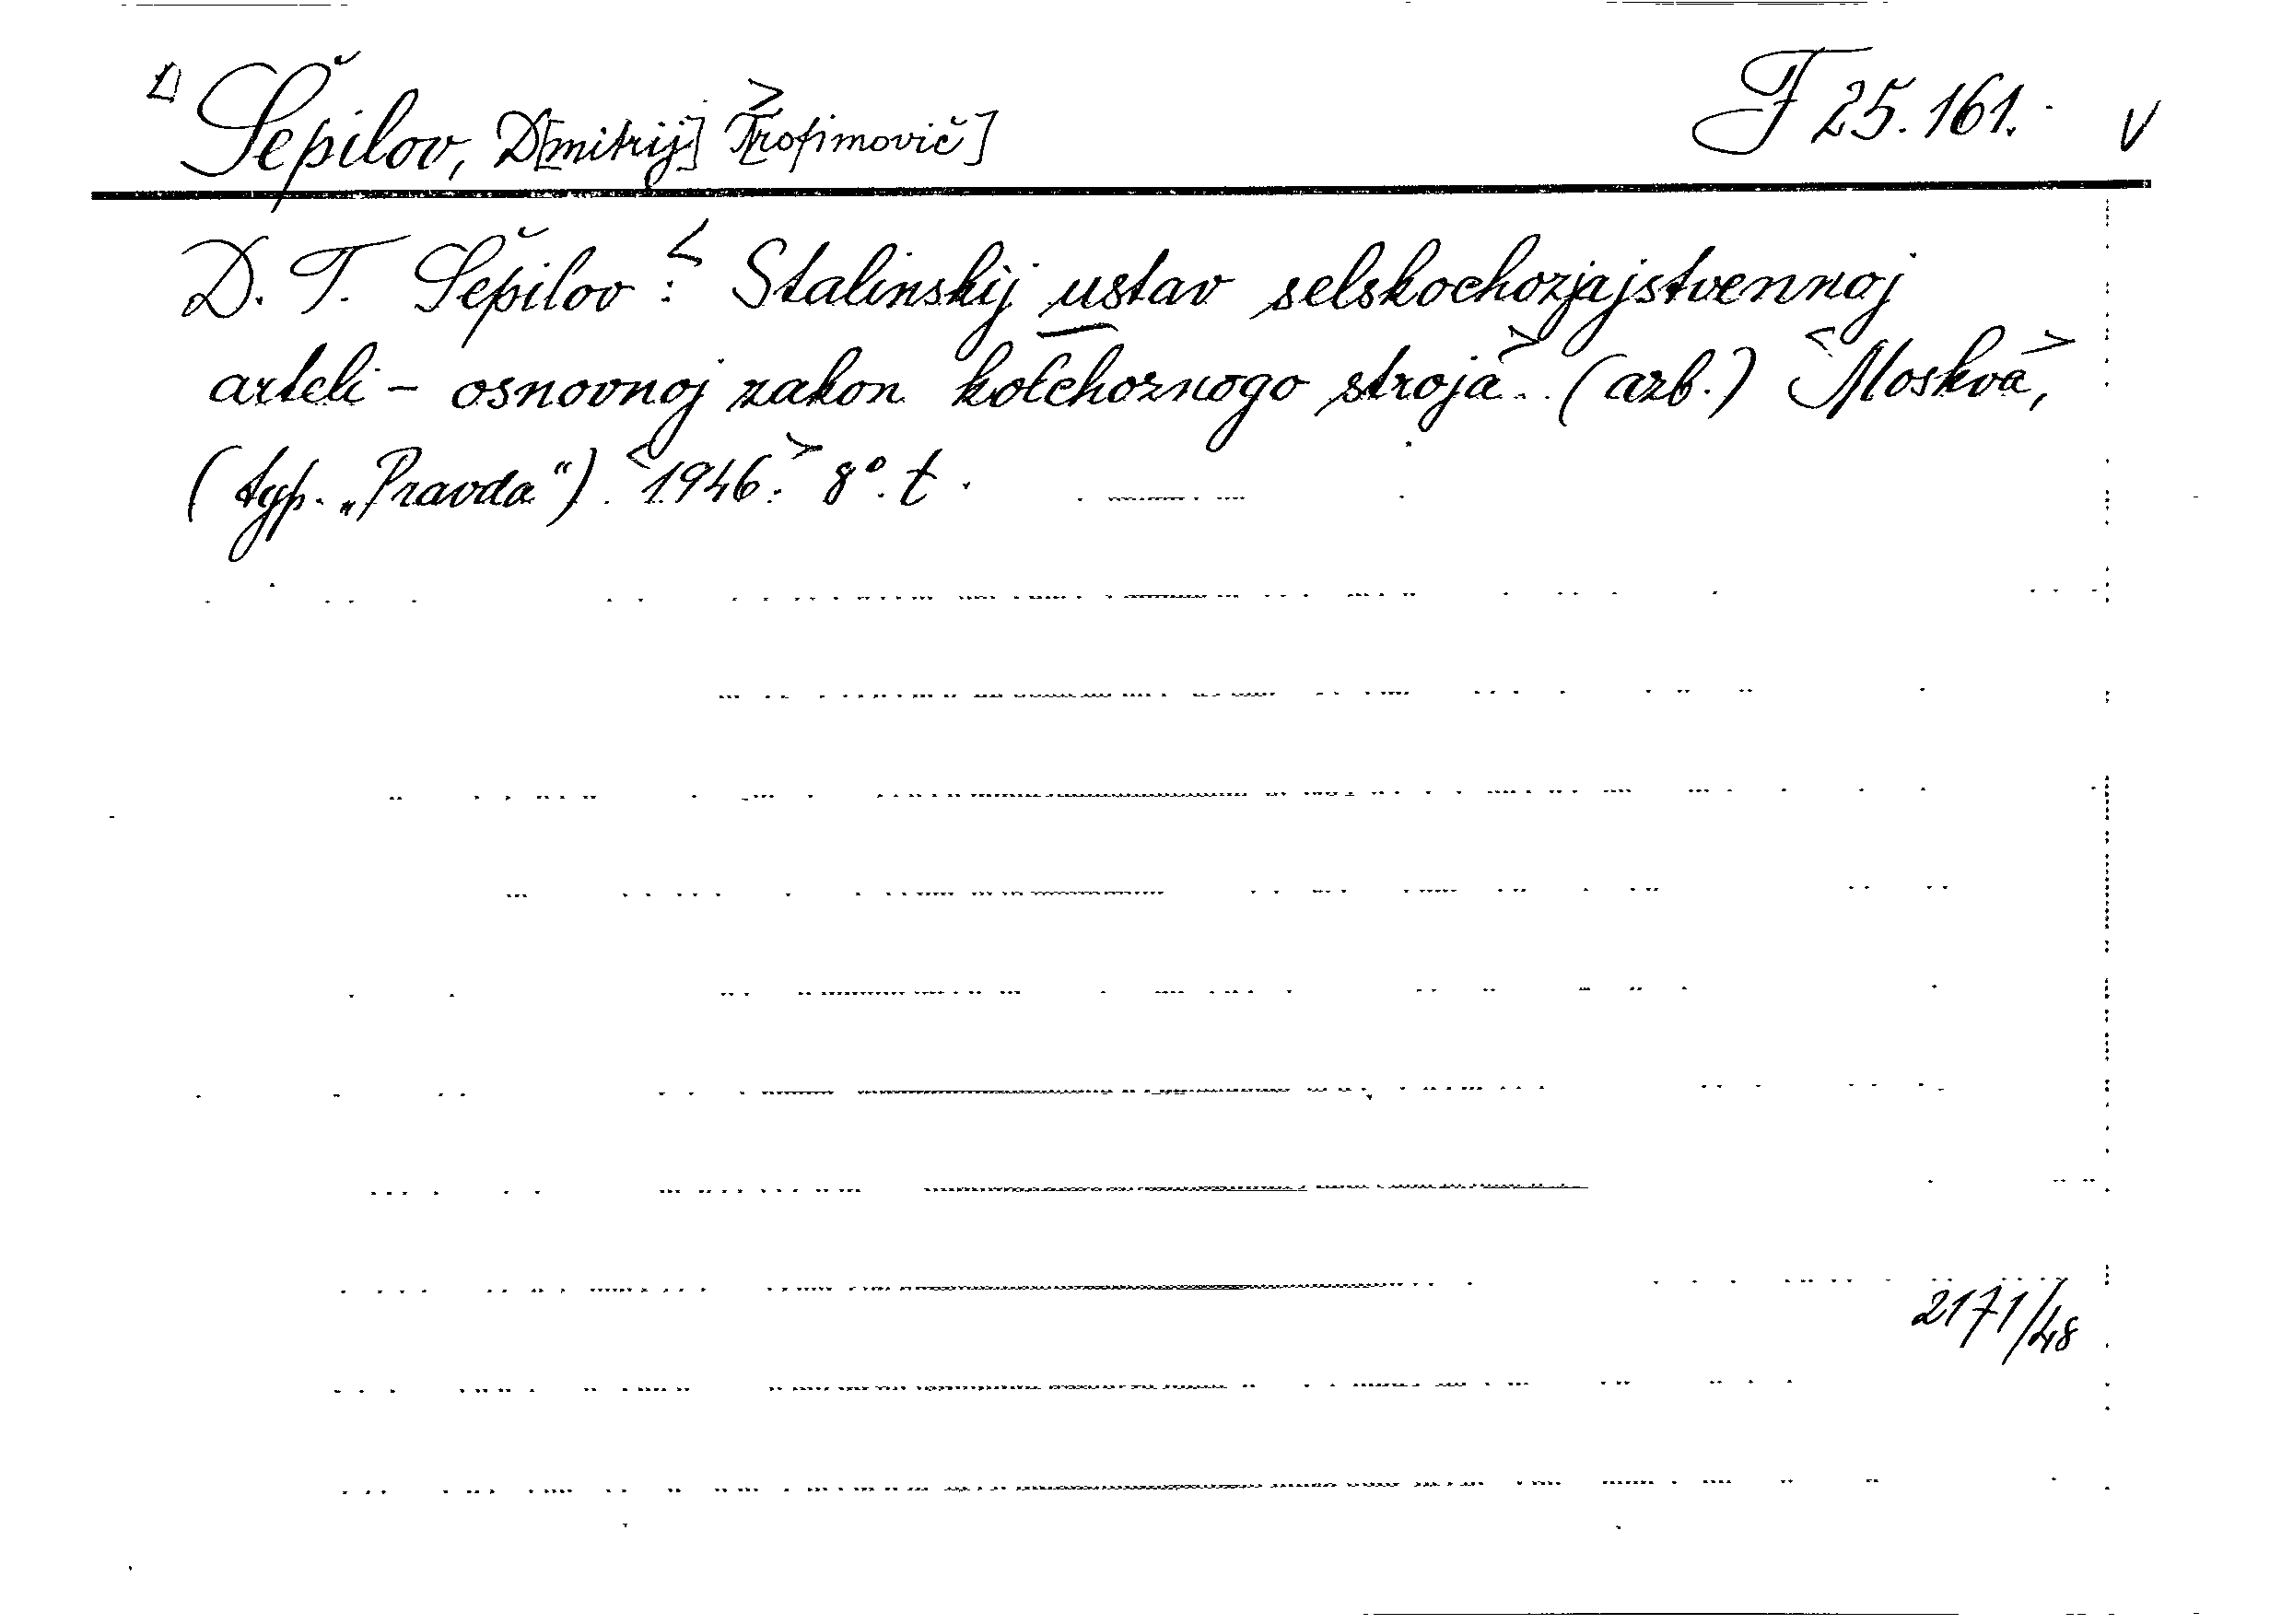 Šepilov, D[mitrij] T[rofimovič] F 25.161. V
D. T. Šepilov: Stalinskij ustav selskochozjajstvennoj
arteli - osnovnoj zakon kolchoznogo stroja. (azb.) Moskva,
(typ. „Pravda“). 1946. 8°. t.
2171/48